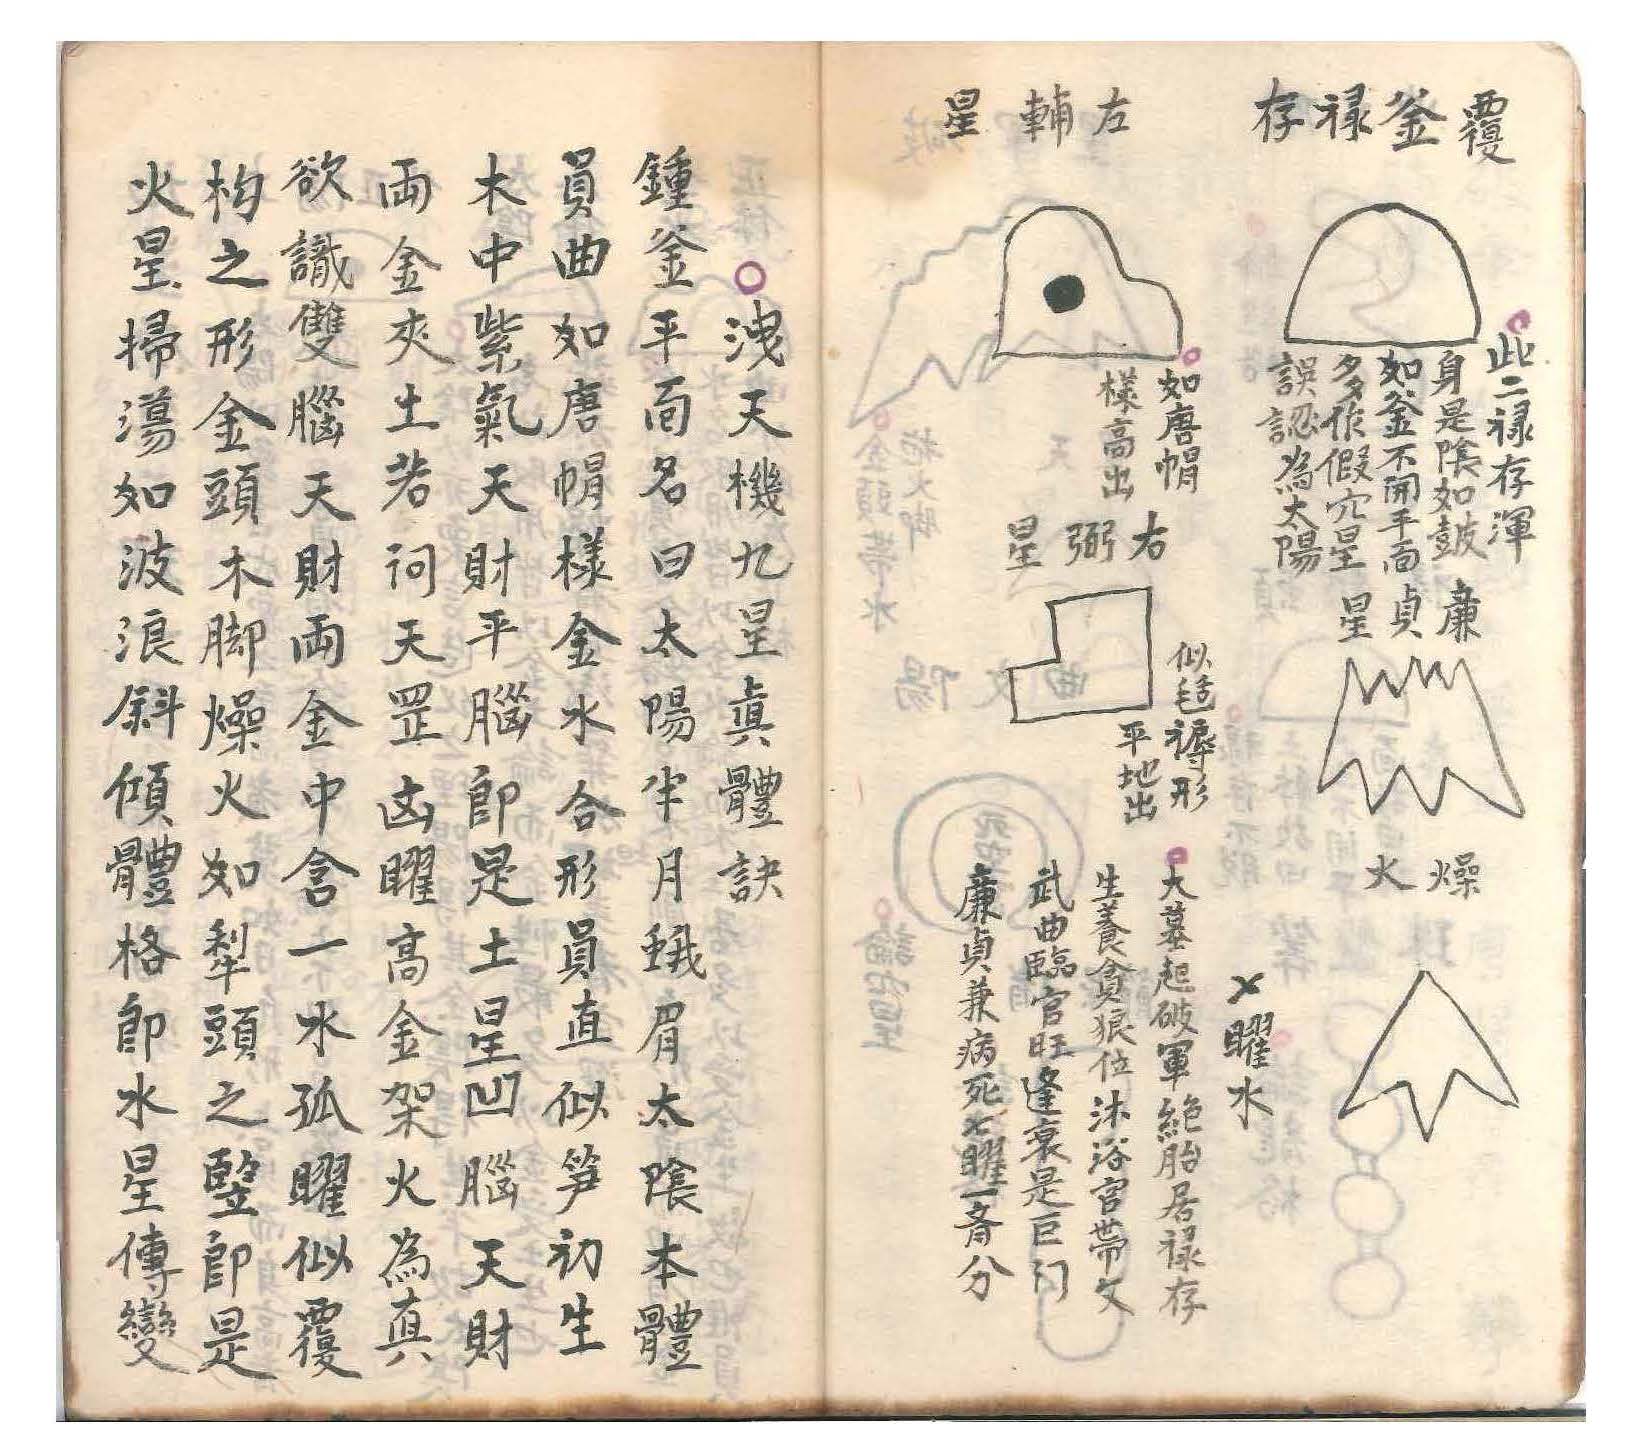 覆釜祿存
此二祿存渾
身是陰如鼓
如釜不開平面
多作假穴星
誤認為太陽
廉貞星
燥火
左輔星
如唐帽
樣高出
右弼星
似毡褥形
平地出
曜水
大墓起破軍絕胎居祿存
生養貪狼位沐浴宮帶文
武曲臨官旺逢衰是巨门
廉貞兼病死七曜一齊分
洩天機九星真體訣
鍾釜平面名曰太陽半月蛾眉太陰本體
員曲如唐帽樣金水合形員直似笋初生
木中紫氣天財平腦即是土星凹腦天財
両金夾土若詞天罡凶曜高金架火為真
欲識雙腦天財両金中含一水孤曜似覆
杓之形金頭木脚燥火如犁頭之豎即是
火星掃蕩如波浪斜傾體格即水星傳變